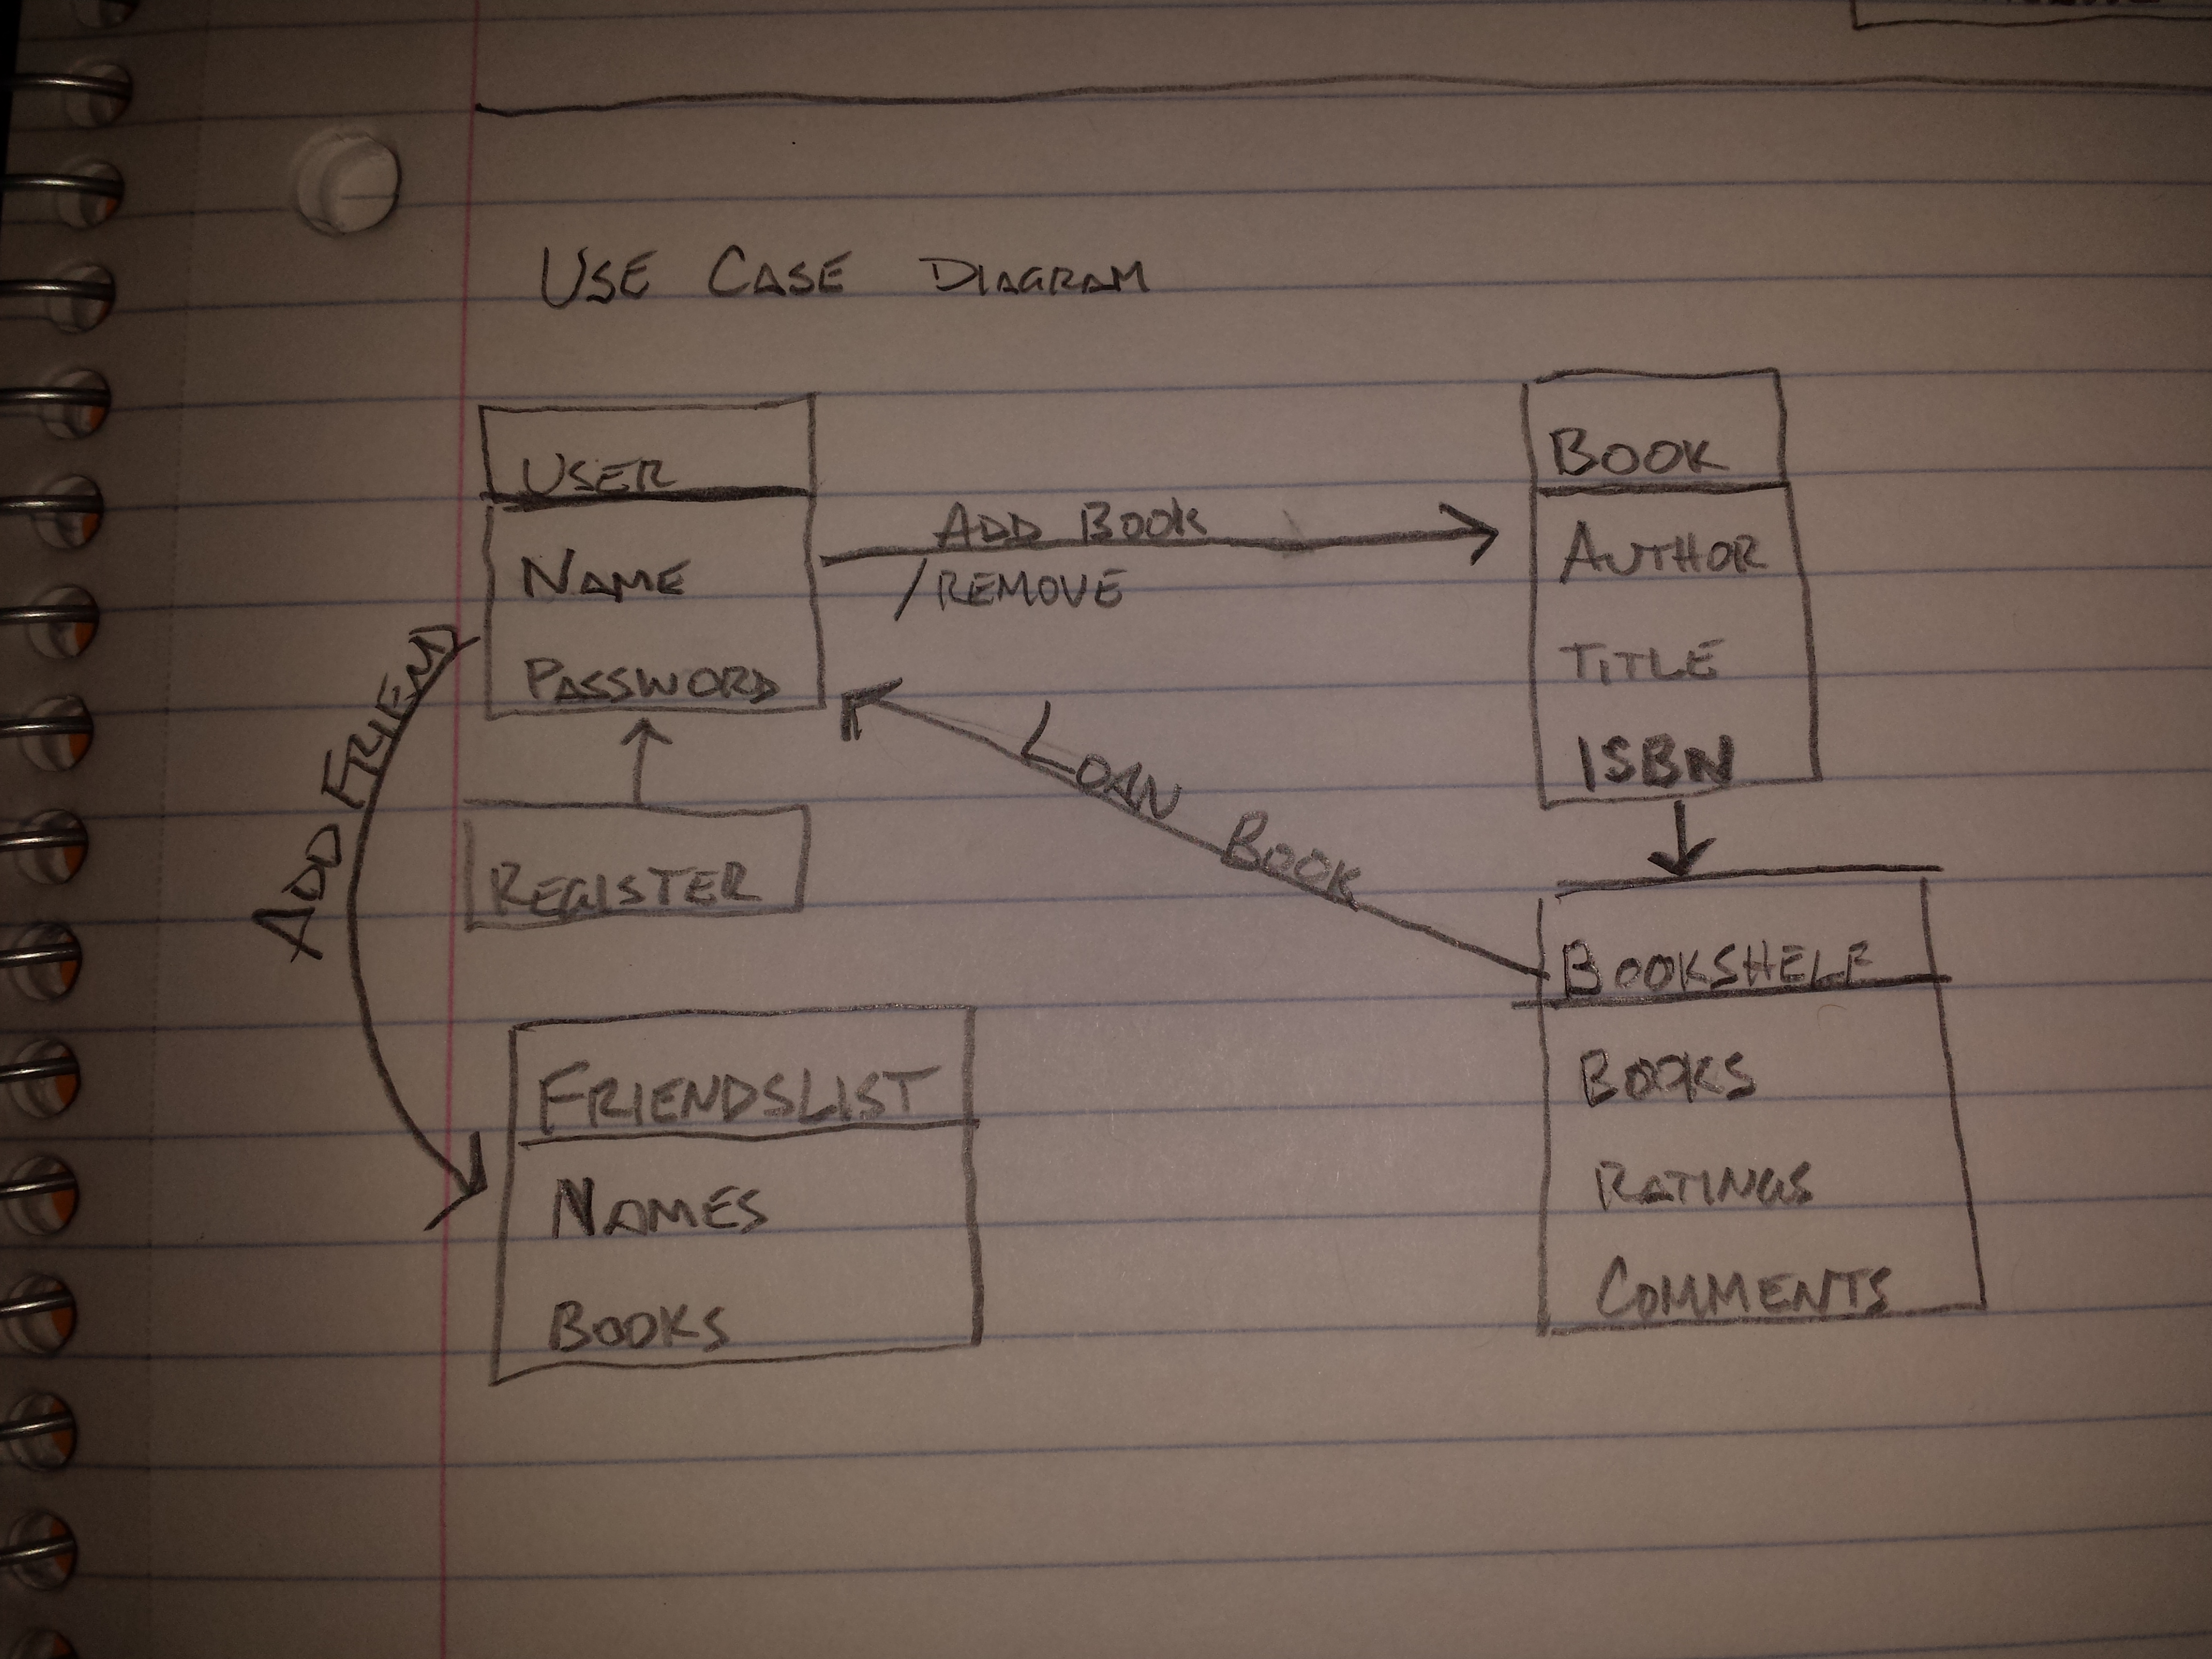 USE CASE DIAGRAM
USER
NAME
PASSWORD
ADD BOOK
/REMOVE
BOOK
AUTHOR
TITLE
ISBN
ADD FRIEND
LOAN BOOK
REGISTER
BOOKSHELF
BOOKS
RATINGS
COMMENTS
FRIENDSLIST
NAMES
BOOKS